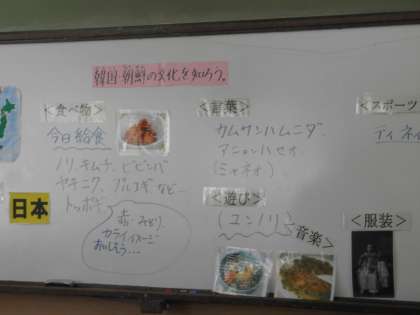 韓国・朝鮮の文化を知ろう。
<食べ物>
今日給食
ノリ、キムチ、ビビンバ
ヤキニク、プルコギなど…
トッポギ
赤・みどり
カライイメージ
おいしそう…
日本
<言葉>
カムサンハムニダ
アニョンハセオ
(ミャネオ)
<遊び>
(ユンノリ)
<音楽>
<スポーツ
<服装>